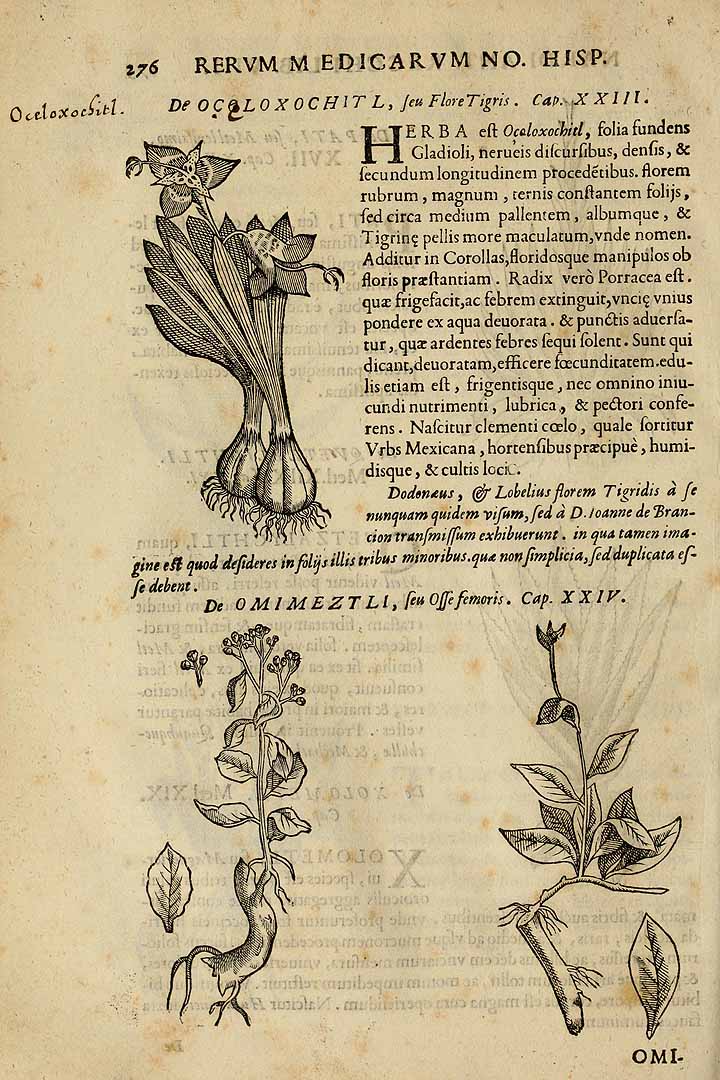 276 RERVM MEDICARVM NO. HISP.
Oceloxochitl.
De OÇELOXOCHITL, ſeu Flore Tigris. Cap. XXIII.
HERBA eſt Oçeloxochitl, folia fundens
Gladioli, nerueis diſcurſibus, denſis, &
ſecundum longitudinem procedētibus. florem
rubrum, magnum, ternis conſtantem folijs,
ſed circa medium pallentem, albumque, &
Tigrinę pellis more maculatum, vnde nomen.
Additur in Corollas, floridosque manipulos ob
floris præſtantiam. Radix verò Porracea eſt.
quæ frigefacit, ac febrem extinguit, vncię vnius
pondere ex aqua deuorata. & punctis aduerſa-
tur, quæ ardentes febres ſequi ſolent. Sunt qui
dicant, deuoratam, efficere fœcunditatem. edu-
lis etiam eſt, frigentisque, nec omnino iniu-
cundi nutrimenti, lubrica, & pectori confe-
rens. Naſcitur clementi cœlo, quale ſortitur
Vrbs Mexicana, hortenſibus præcipuè, humi-
disque, & cultis locis.
Dodonæus, & Lobelius florem Tigridis à ſe
nunquam quidem viſum, ſed à D. Ioanne de Bran-
cion tranſmiſſum exhibuerunt. in qua tamen ima-
gine eſt quod deſideres in folijs illis tribus minoribus. quæ non ſimplicia, ſed duplicata eſ-
ſe debent.
De OMIMEZTLI, ſeu Oſſe femoris. Cap. XXIV.
OMI-